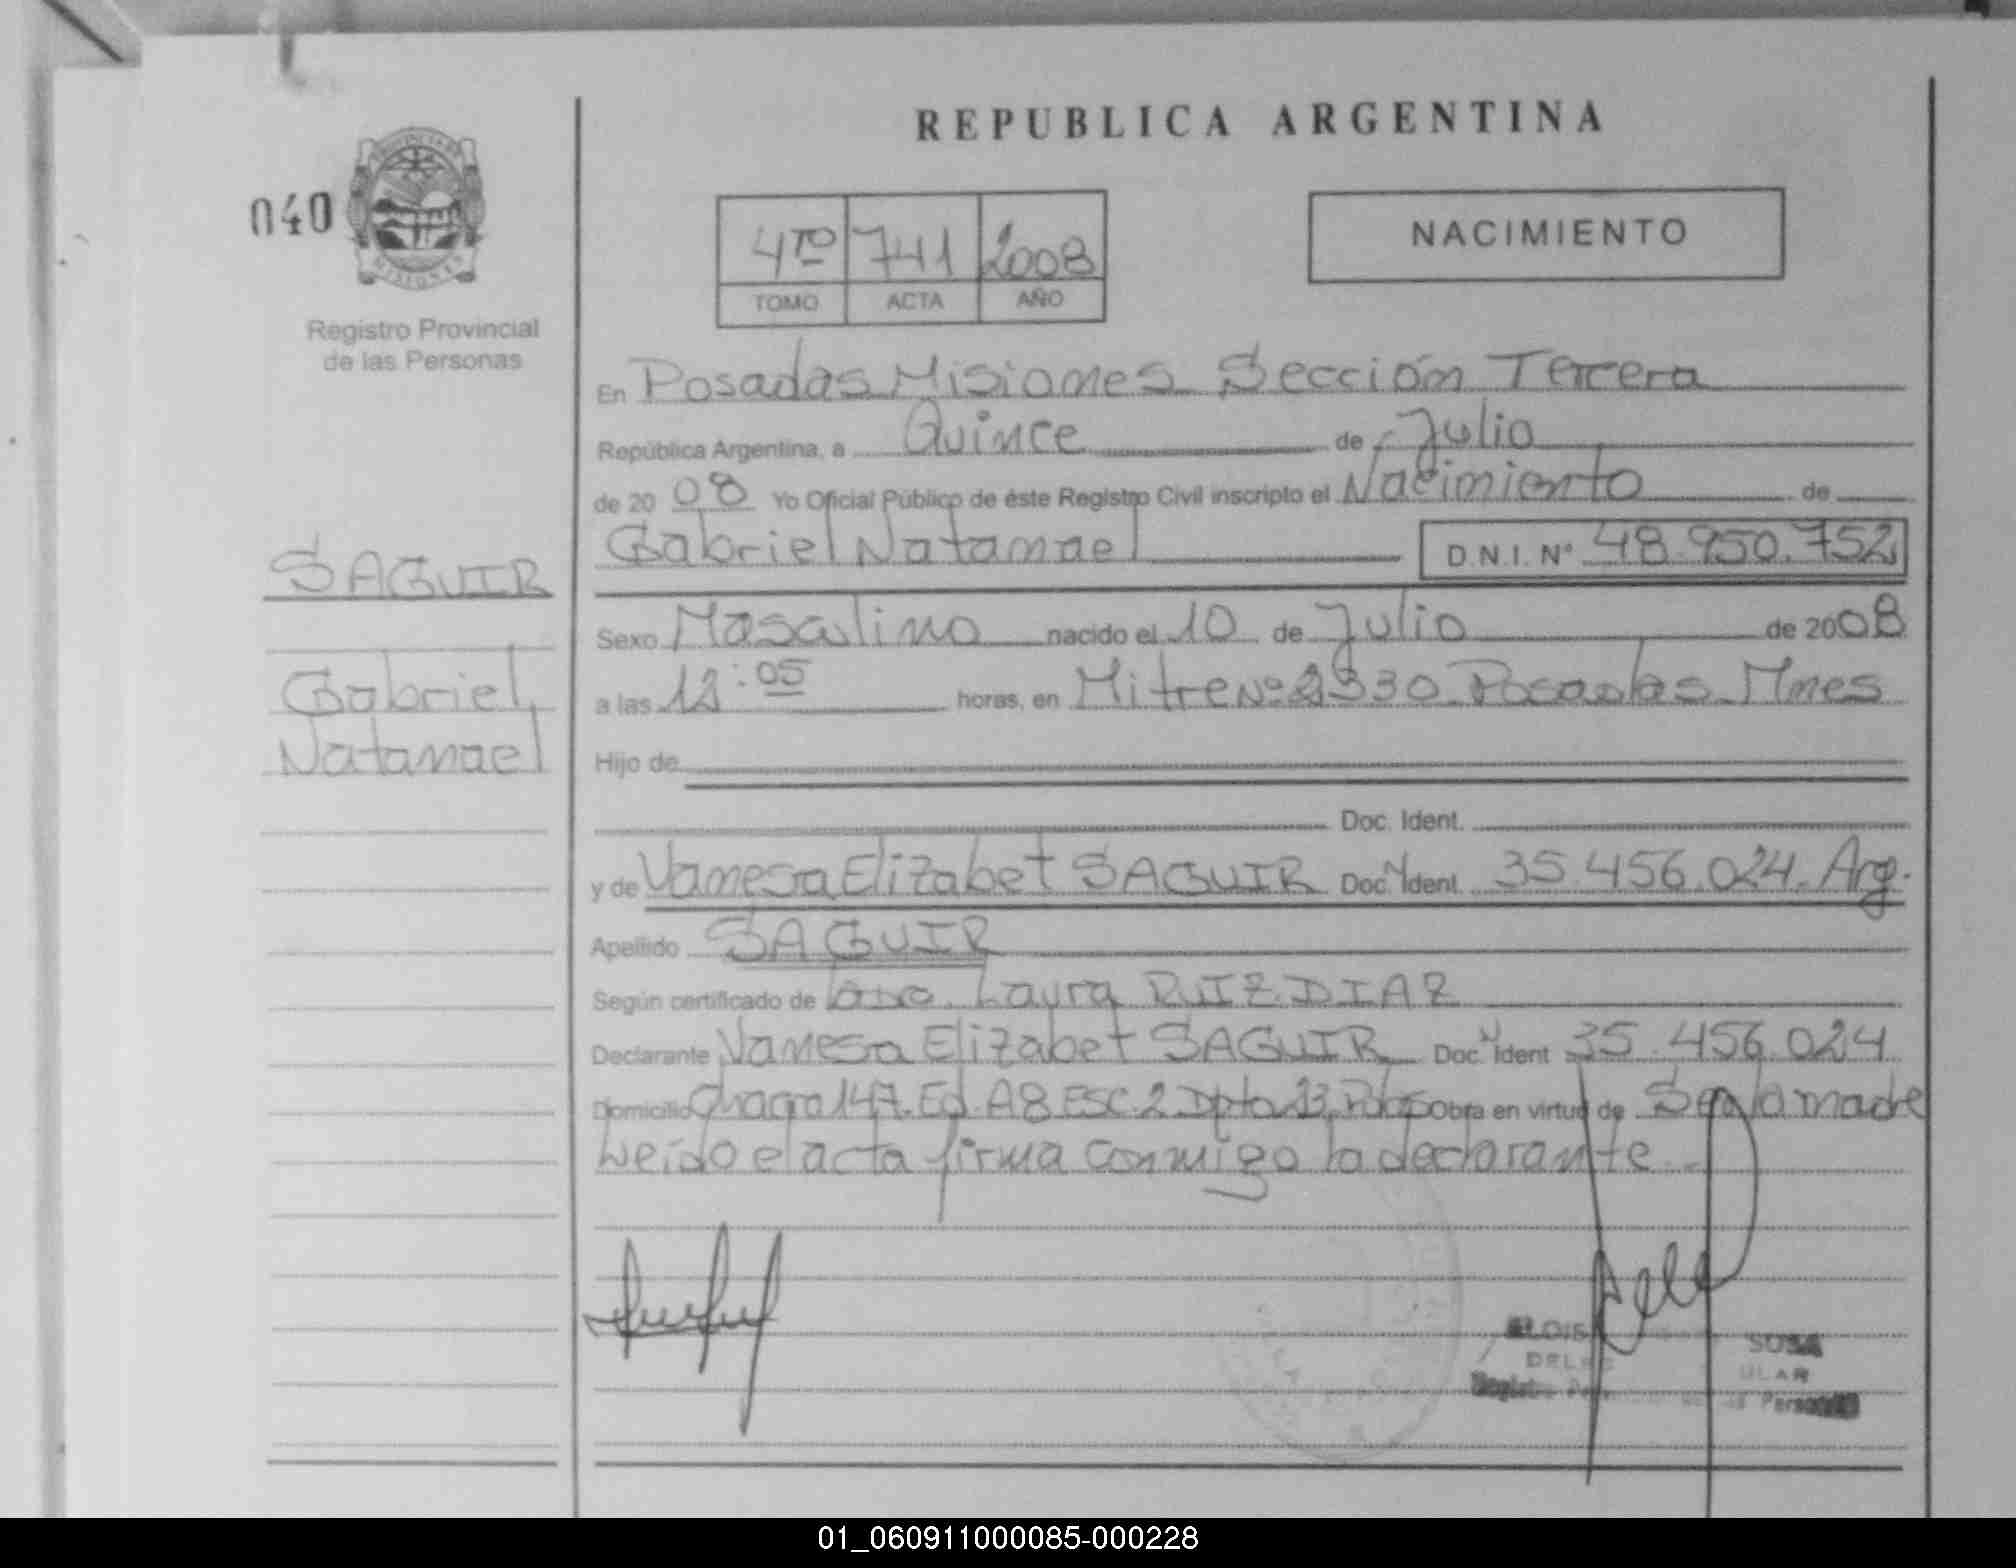 REPUBLICA ARGENTINA
040
PROVINCIA DE
MISIONES
Registro Provincial
de las Personas
4TO 741 2008
TOMO ACTA AÑO
NACIMIENTO
En Posadas Misiones Sección Tercera
República Argentina, a Quince de Julio
de 2008 Yo Oficial Público de éste Registro Civil inscripto el Nacimiento de
Gabriel Natanael D.N.I. Nº 48.950.752
SAGUIR
Gabriel
Natanael
Sexo Masculino nacido el 10 de Julio de 2008
a las 12:05 horas, en Mitre Nº 2330 Posadas Mnes
Hijo de
Doc. Ident.
y de Vanesa Elizabet SAGUIR Doc. Ident. 35.456.024. Arg.
Apellido SAGUIR
Según certificado de Laura RUIZ DIAZ
Declarante Vanesa Elizabet SAGUIR Doc. Ident 35.456.024
Domicilio Chacra 147. Ed. A8 ESC. 2 Dpto 23. Obra en virtud de Ser la madre
Leído el acta firma conmigo la declarante.
SOSA
01_060911000085-000228